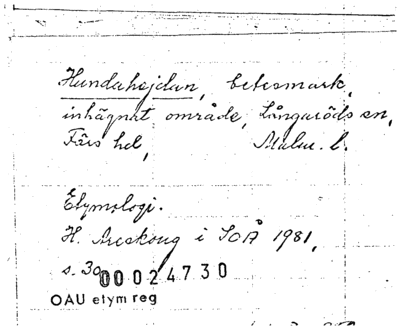 Hundahejdan, betesmark,
inhägnat område, Långaröds sn,
Färs hd, Malm. l.
Etymologi.
H. Areskoug i SOÅ 1981,
s. 30
00024730
OAU etym reg